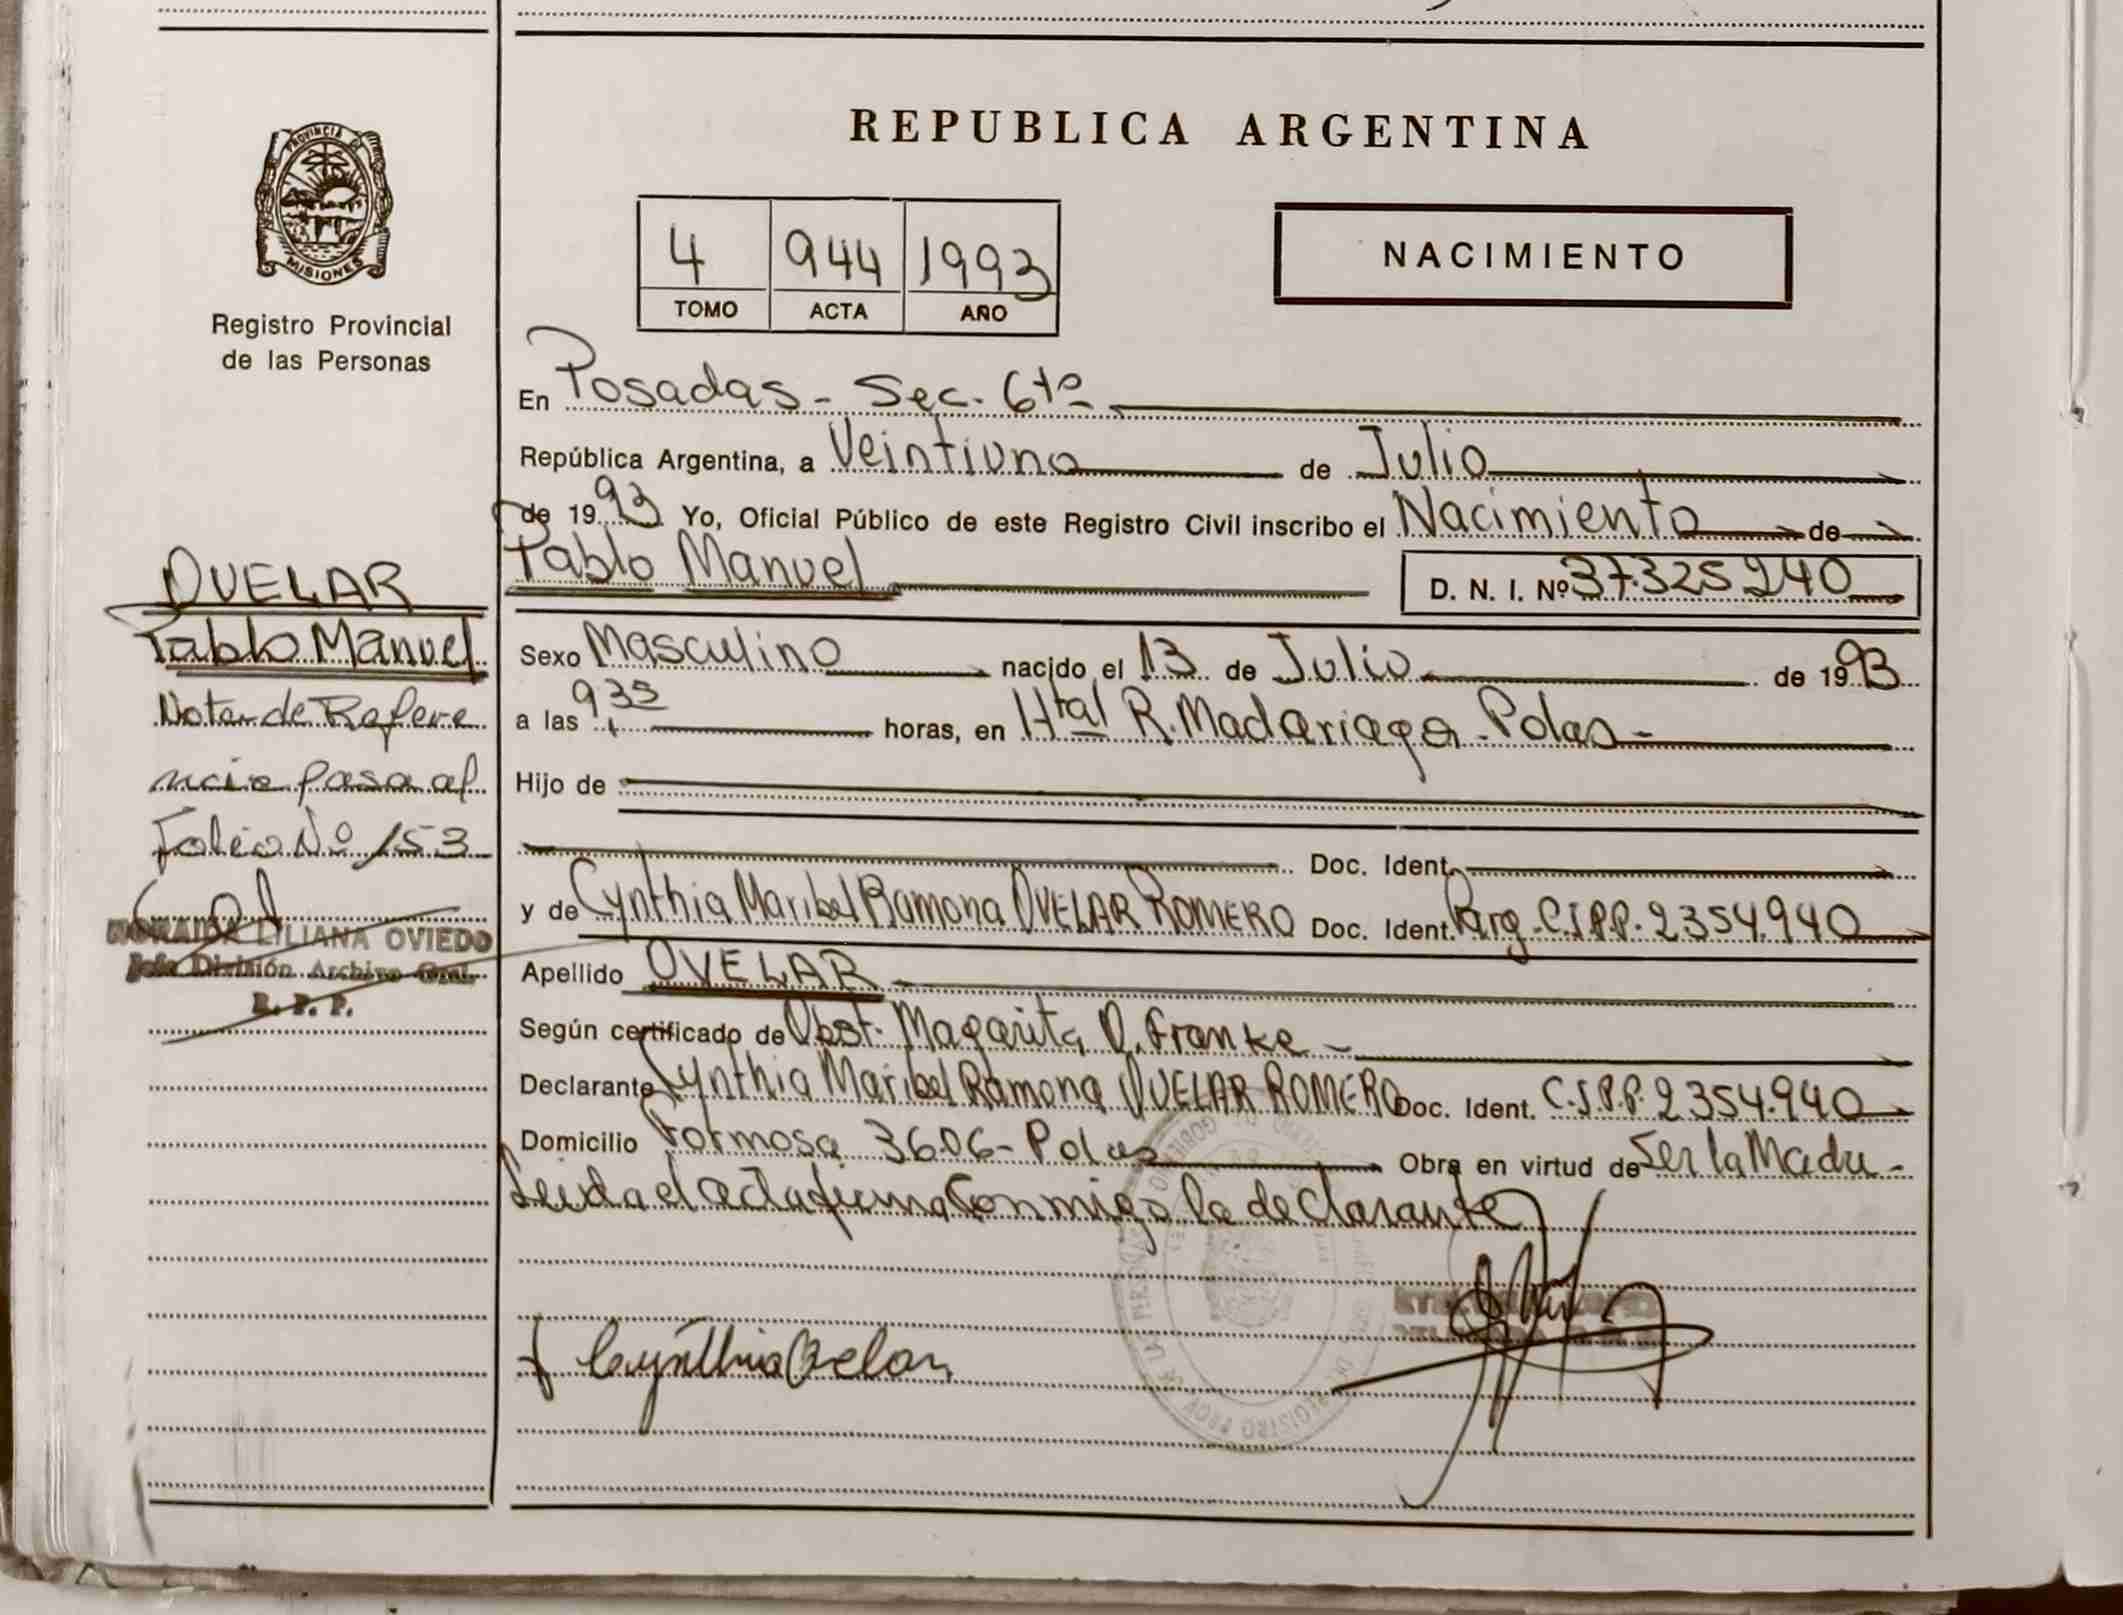 PROVINCIA DE
MISIONES
Registro Provincial
de las Personas
OVELAR
Pablo Manuel
Nota de Refere
ncia pasa al
Folio Nº 153
LILIANA OVIEDO
Jefe División Archivo Gral.
R. P. P.
REPUBLICA ARGENTINA
4 944 1993
TOMO ACTA AÑO
NACIMIENTO
En Posadas - Sec. 6ta
República Argentina, a Veintiuno de Julio
de 1993 Yo, Oficial Público de este Registro Civil inscribo el Nacimiento de
Pablo Manuel D. N. I. Nº 37.325240
Sexo Masculino nacido el 13 de Julio de 1993
a las 935 horas, en Htal R. Madariaga - Pdas -
Hijo de
Doc. Ident.
y de Cynthia Maribel Ramona OVELAR ROMERO Doc. Ident. Parg. C.I.P.P. 2354.940
Apellido OVELAR
Según certificado de Obst. Magarita O. Franke -
Declarante Cynthia Maribel Ramona OVELAR ROMERO Doc. Ident. C.I.P.P. 2354.940
Domicilio Formosa 3606 - Pdas Obra en virtud de Ser la Madre -
Leida el acta firma conmigo la declarante
Cynthia Ovelar